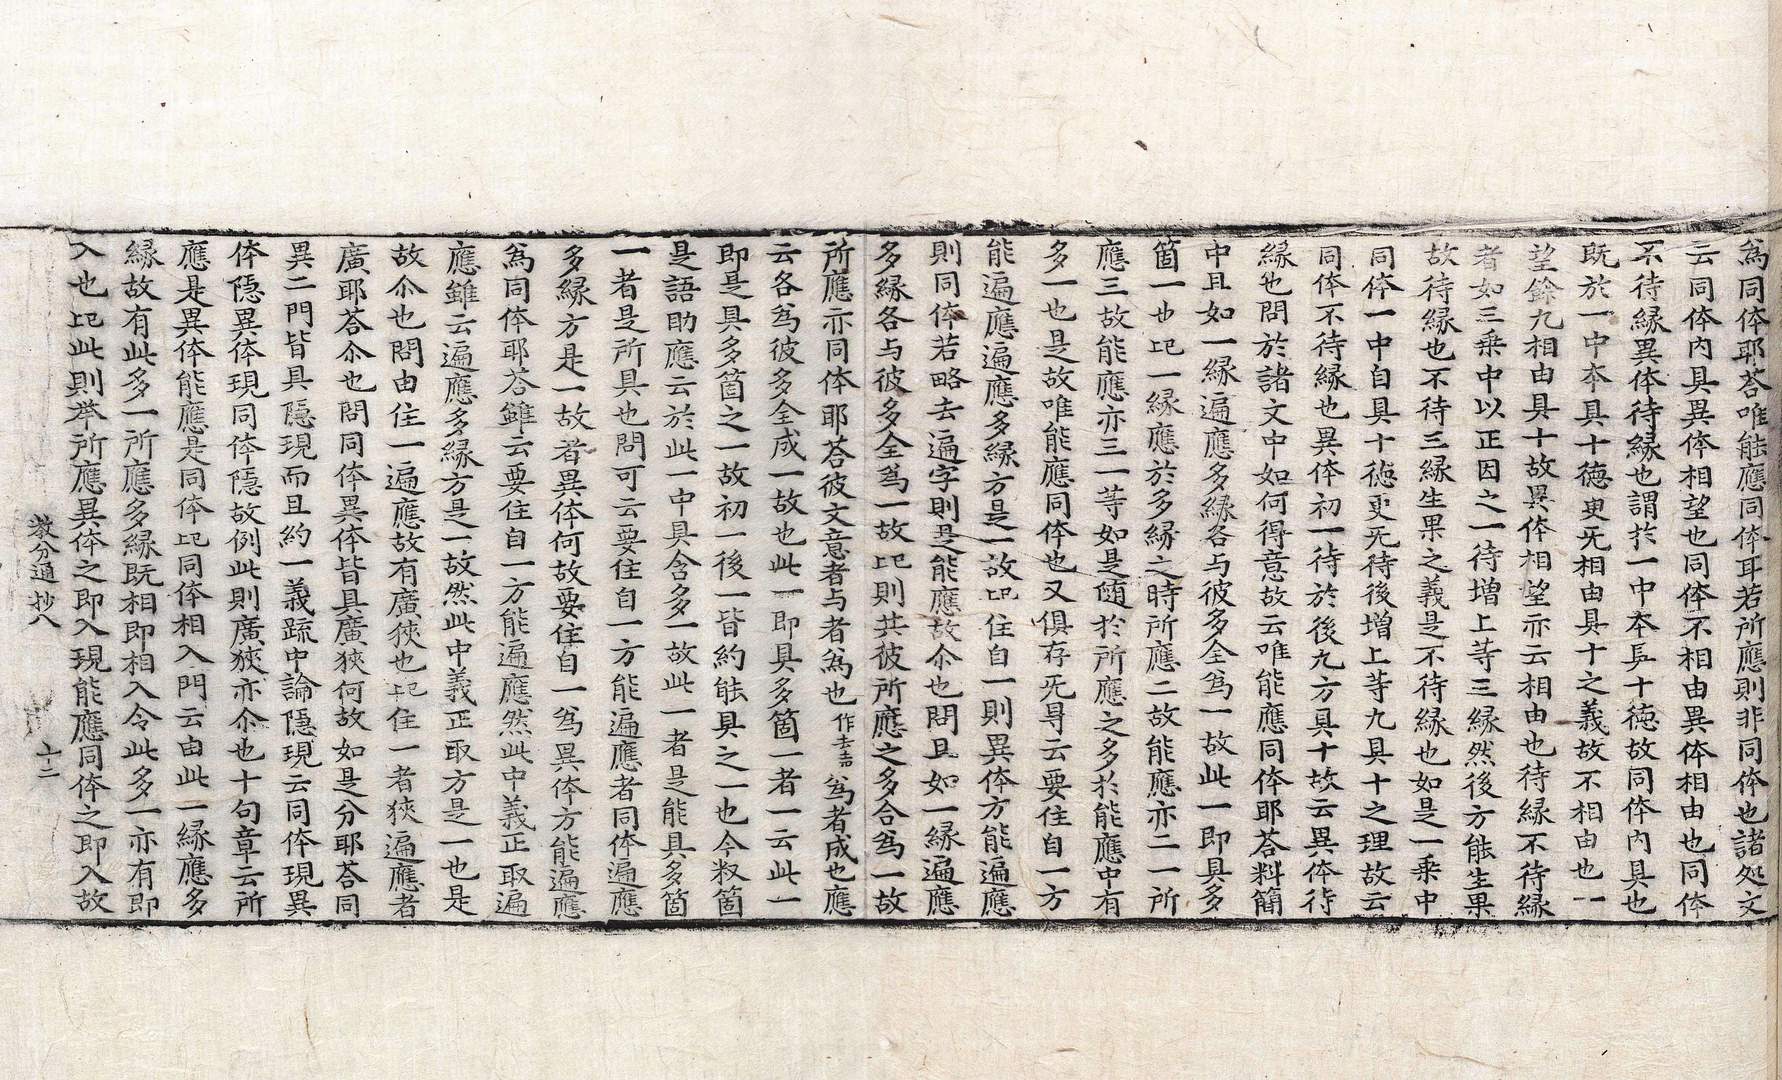 為同体耶荅唯能應同体耳若所應則非同体也諸処文
云同体內具異体相望也同体不相由異体相由也同体
不待縁異体待縁也謂扵一中夲具十德故同体內具也
既扵一中夲具十德更旡相由具十之義故不相由也一
望餘九相由具十故異体相望亦云相由也待縁不待縁
者如三乗中以正因之一待增上等三縁然後方能生果
故待縁也不待三縁生果之義是不待縁也如是一乗中
同体一中自具十德更旡待後增上等九具十之理故云
同体不待縁也異体初一待扵後九方具十故云異体待
縁也問扵諸文中如何得意故云唯能應同体耶荅料簡
中且如一縁遍應多縁各与彼多全為一故此一即具多
箇一也記一縁應扵多縁之時所應二故能應亦二一所
應三故能應亦三一等如是隨扵所應之多扵能應中有
多一也是故唯能應同体也又俱存旡㝵云要住自一方
能遍應遍應多縁方是一故記住自一則異体方能遍應
則同体若略去遍字則是能應故尒也問且如一縁遍應
多縁各与彼多全為一故記則共彼所應之多合為一故
所應亦同体耶荅彼文意者与者為也作去吉為者成也應
云各為彼多全成一故也此一即具多箇一者一云此一
即是具多箇之一故初一後一皆約能具之一也今釈箇
是語助應云扵此一中具含多一故此一者是能具多箇
一者是所具也問可云要住自一方能遍應者同体遍應
多縁方是一故者異体何故要住自一為異体方能遍應
為同体耶荅雖云要住自一方能遍應然此中義正取遍
應雖云遍應多縁方是一故然此中義正取方是一也是
故尒也問由住一遍應故有廣狹也記住一者狹遍應者
廣耶荅尒也問同体異体皆具廣狹何故如是分耶荅同
異二門皆具隱現而且約一義䟽中論隱現云同体現異
体隱異体現同体隱故例此則廣狹亦尒也十句章云所
應是異体能應是同体記同体相入門云由此一縁應多
縁故有此多一所應多縁既相即相入令此多一亦有即
入也記此則举所應異体之即入現能應同体之即入故
教分通抄八　十二